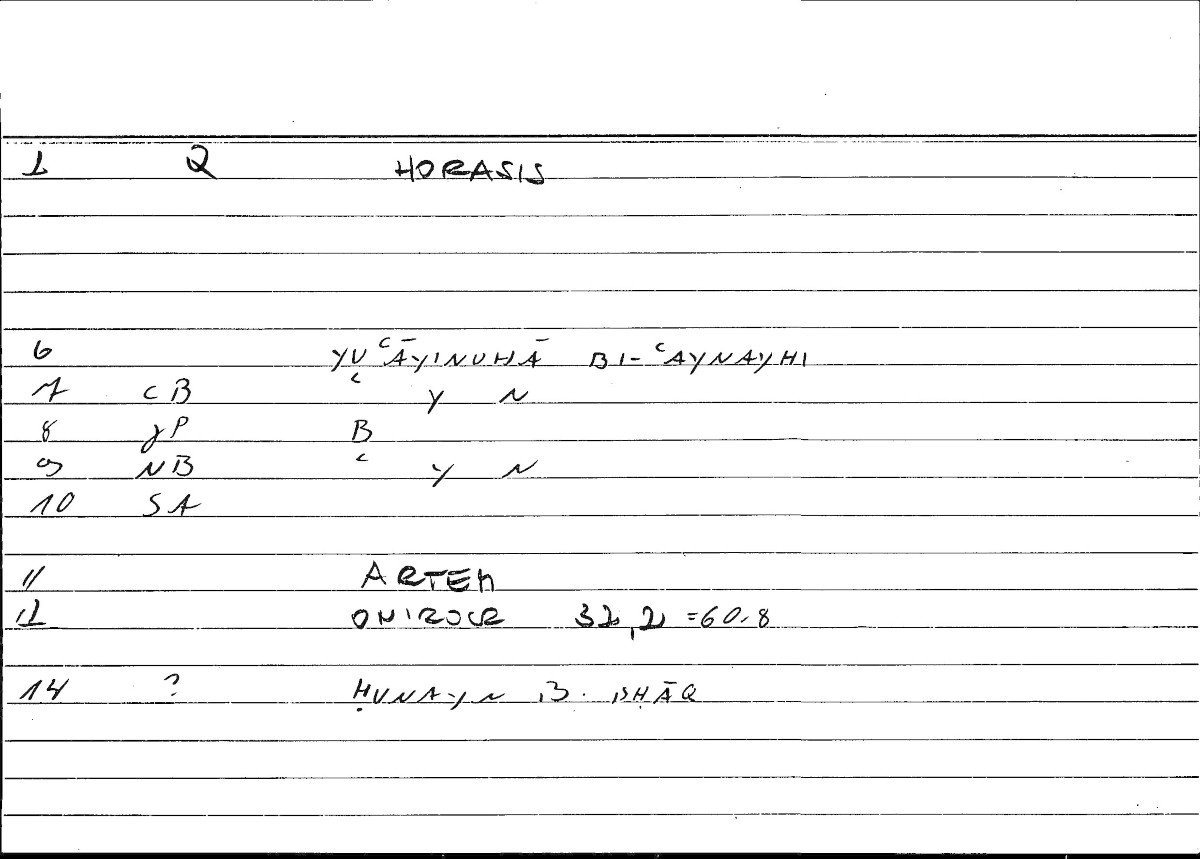 1 Q HORASIS
6 YUʿĀYINUHĀ BI-ʿAYNAYHI
7 CB ʿ Y N
8 γP B
9 NB ʿ Y N
10 SA
11 ARTEM
12 ONIROCR 32,2 =60.8
14 ? ḤUNAYN B. ISḤĀQ